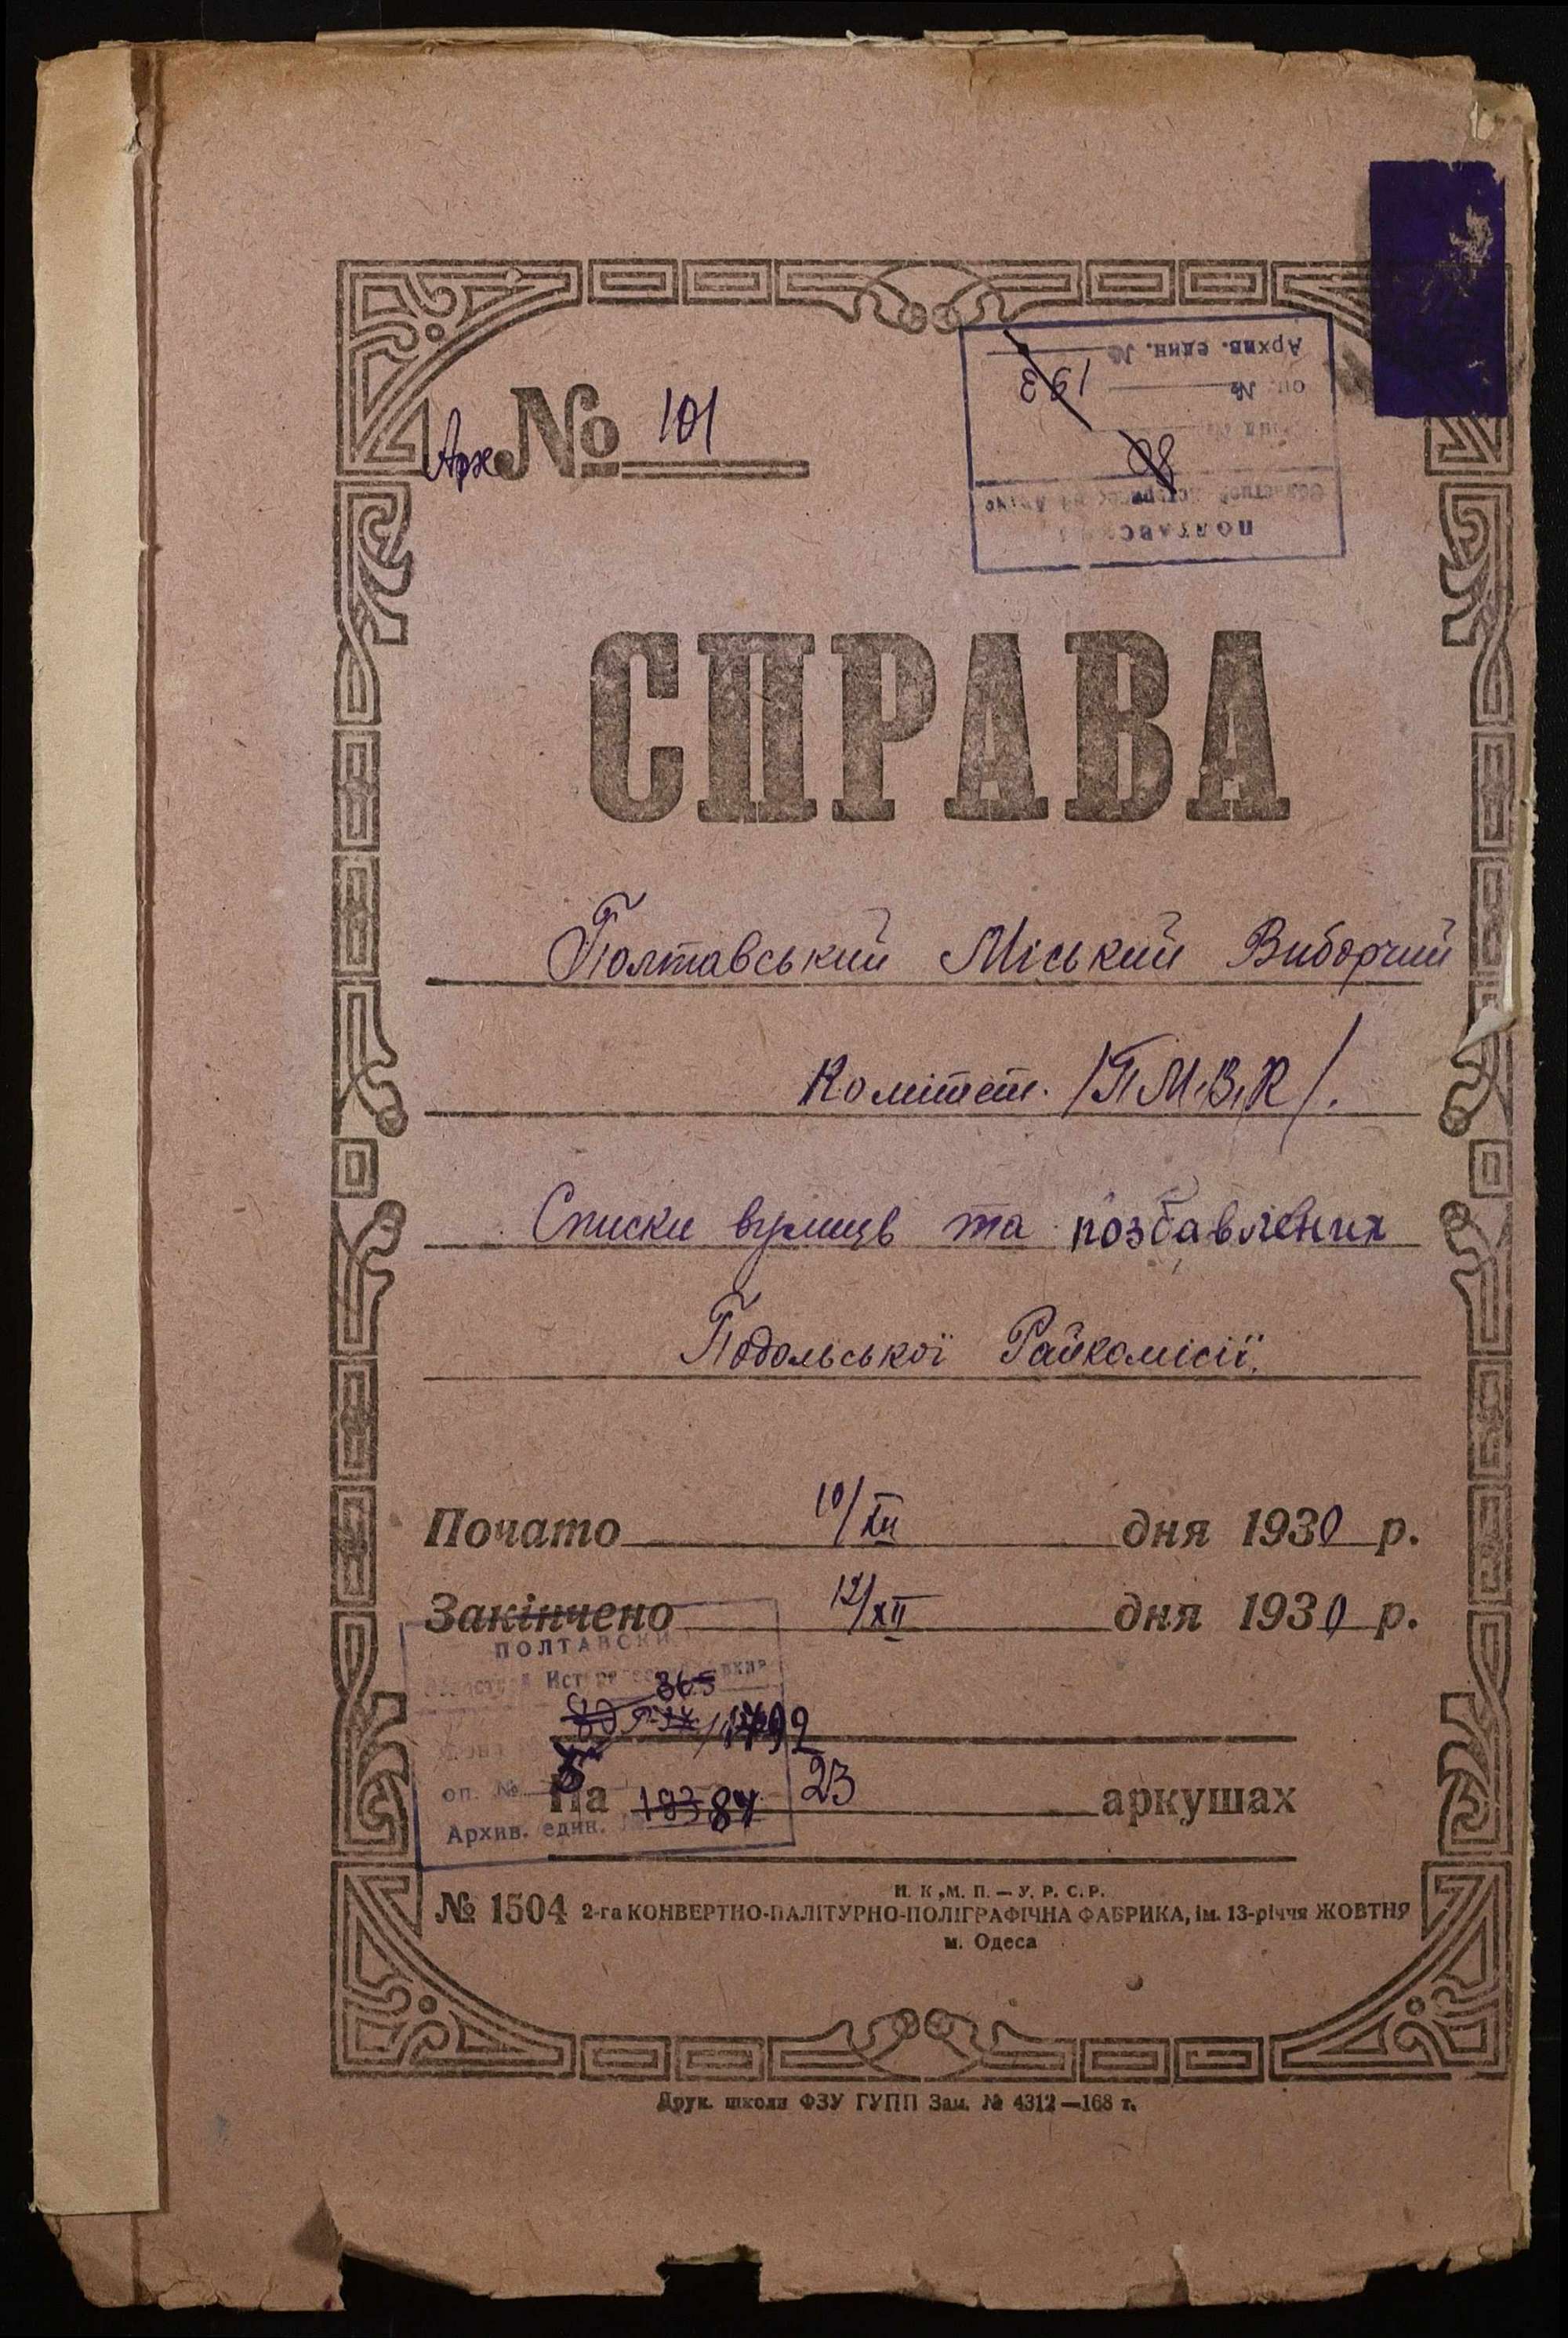 Арх № 101
Архив. един. №
оп. № 193
88
ПОЛТАВС
СПРАВА
Полтавський Міський Виборчий
Комітет. /П.М.В.К/.
Списки вулиць та позбавлених
Подольської Райкомісії.
Почато 10/XII дня 1930 р.
Закінчено 12/XII дня 1930 р.
ПОЛТАВСКИ
365
оп. №
На 193 84 23 аркушах
Архив. един.
Н. К. М. П. — У. Р. С. Р.
№ 1504 2-га КОНВЕРТНО-ПАЛІТУРНО-ПОЛІГРАФІЧНА ФАБРИКА, ім. 13-річчя ЖОВТНЯ
м. Одеса
Друк. школи ФЗУ ГУПП Зам. № 4312—168 т.